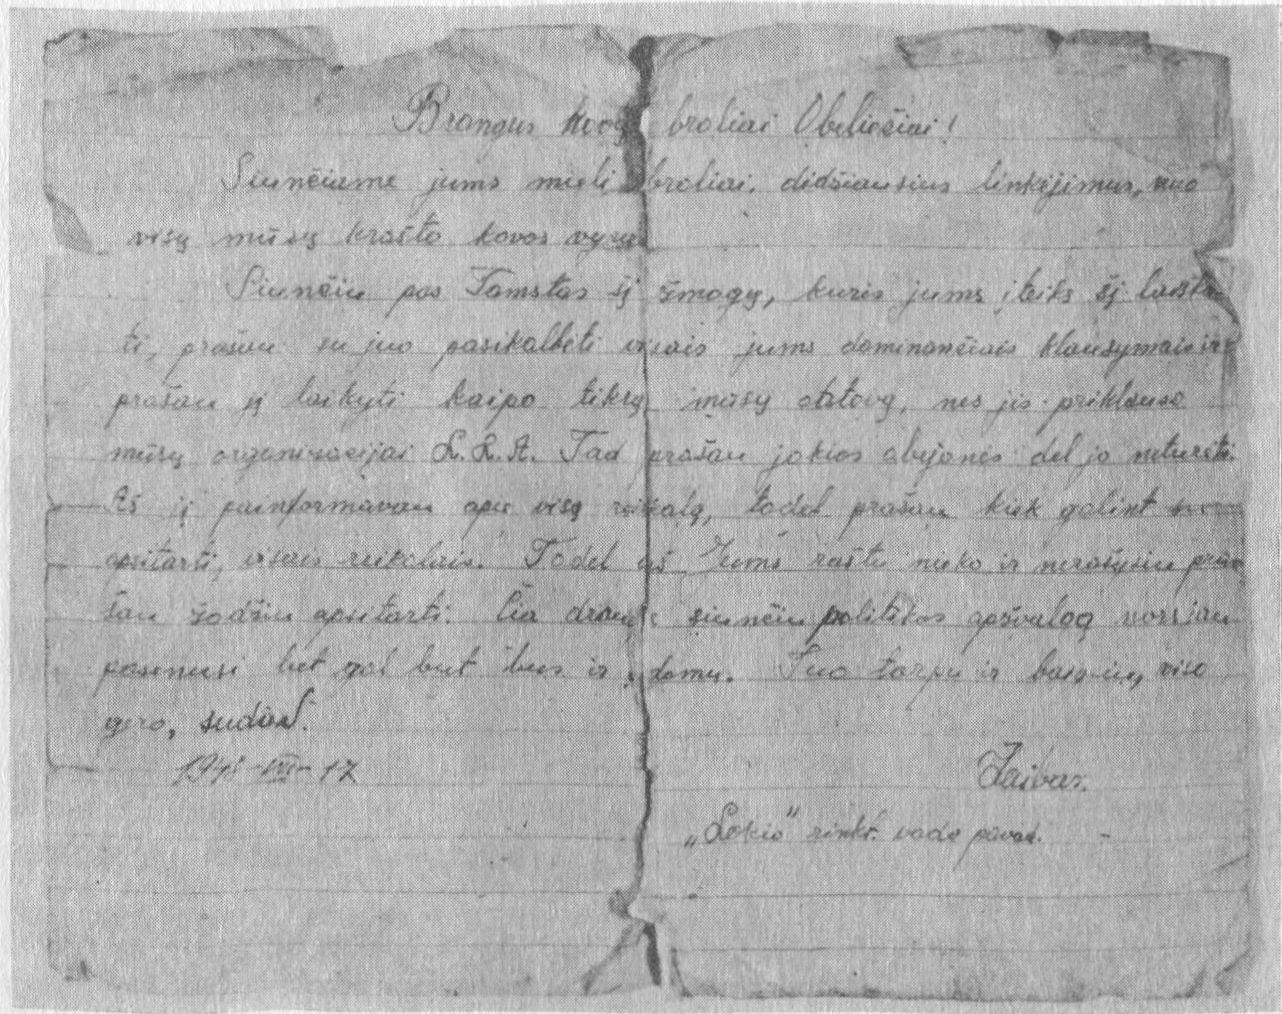 Brangūs kovos broliai Obeliečiai!
Siunčiame jums mieli broliai, didžiausius linkėjimus, nuo
visų mūsų krašto kovos vyrų.
Siunčiu pas Tamstas šį žmogų, kuris jums įteiks šį laiške
ti, prašau su juo pasikalbėti visais jums dominančiais klausymais ir
prašau jį laikyti kaipo tikrą mūsų atstovą, nes jis priklauso
mūsų organizacijai L.L.A. Tad prašau jokios abejonės dėl jo neturėti.
Aš jį painformavau apie visą reikalą, todėl prašau kiek galint
apsitarti, visais reikalais. Todėl aš Jums raštu nieko ir nerašysiu pra
šau žodžiu apsitarti. Čia drauge siunčiu politikos apžvalgą norsjau
pasenusi bet gal būt bus ir įdomu. Tuo tarpu ir baigsiu, viso
gero, sudiev.
1945-VII-17
Žaibas.
„Lokio" rinkt. vado pavad.